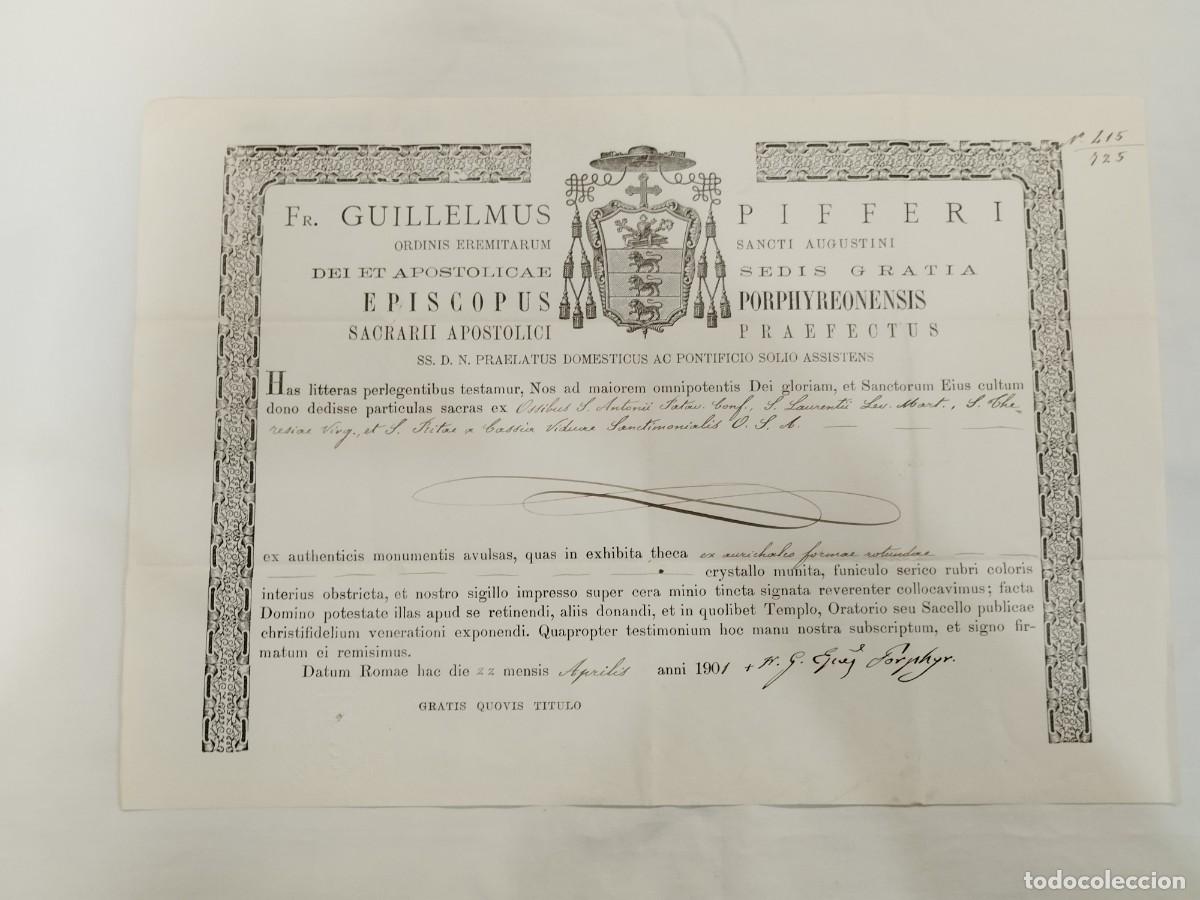 Nº 415
425
FR. GUILLELMUS PIFFERI
ORDINIS EREMITARUM SANCTI AUGUSTINI
DEI ET APOSTOLICAE SEDIS GRATIA
EPISCOPUS PORPHYREONENSIS
SACRARII APOSTOLICI PRAEFECTUS
SS. D. N. PRAELATUS DOMESTICUS AC PONTIFICIO SOLIO ASSISTENS
Has litteras perlegentibus testamur, Nos ad maiorem omnipotentis Dei gloriam, et Sanctorum Eius cultum
dono dedisse particulas sacras ex Ossibus S. Antonii Patav. Conf., S. Laurentii Lev. Mart., S. The-
resiae Virg., et S. Ritae a Cassia Viduae Sanctimonialis O. S. A.
ex authenticis monumentis avulsas, quas in exhibita theca ex aurichalco formae rotundae
crystallo munita, funiculo serico rubri coloris
interius obstricta, et nostro sigillo impresso super cera minio tincta signata reverenter collocavimus; facta
Domino potestate illas apud se retinendi, aliis donandi, et in quolibet Templo, Oratorio seu Sacello publicae
christifidelium venerationi exponendi. Quapropter testimonium hoc manu nostra subscriptum, et signo fir-
matum ei remisimus.
Datum Romae hac die 22 mensis Aprilis anni 1901 + F. G. Epūs Porphyr.
GRATIS QUOVIS TITULO
todocoleccion